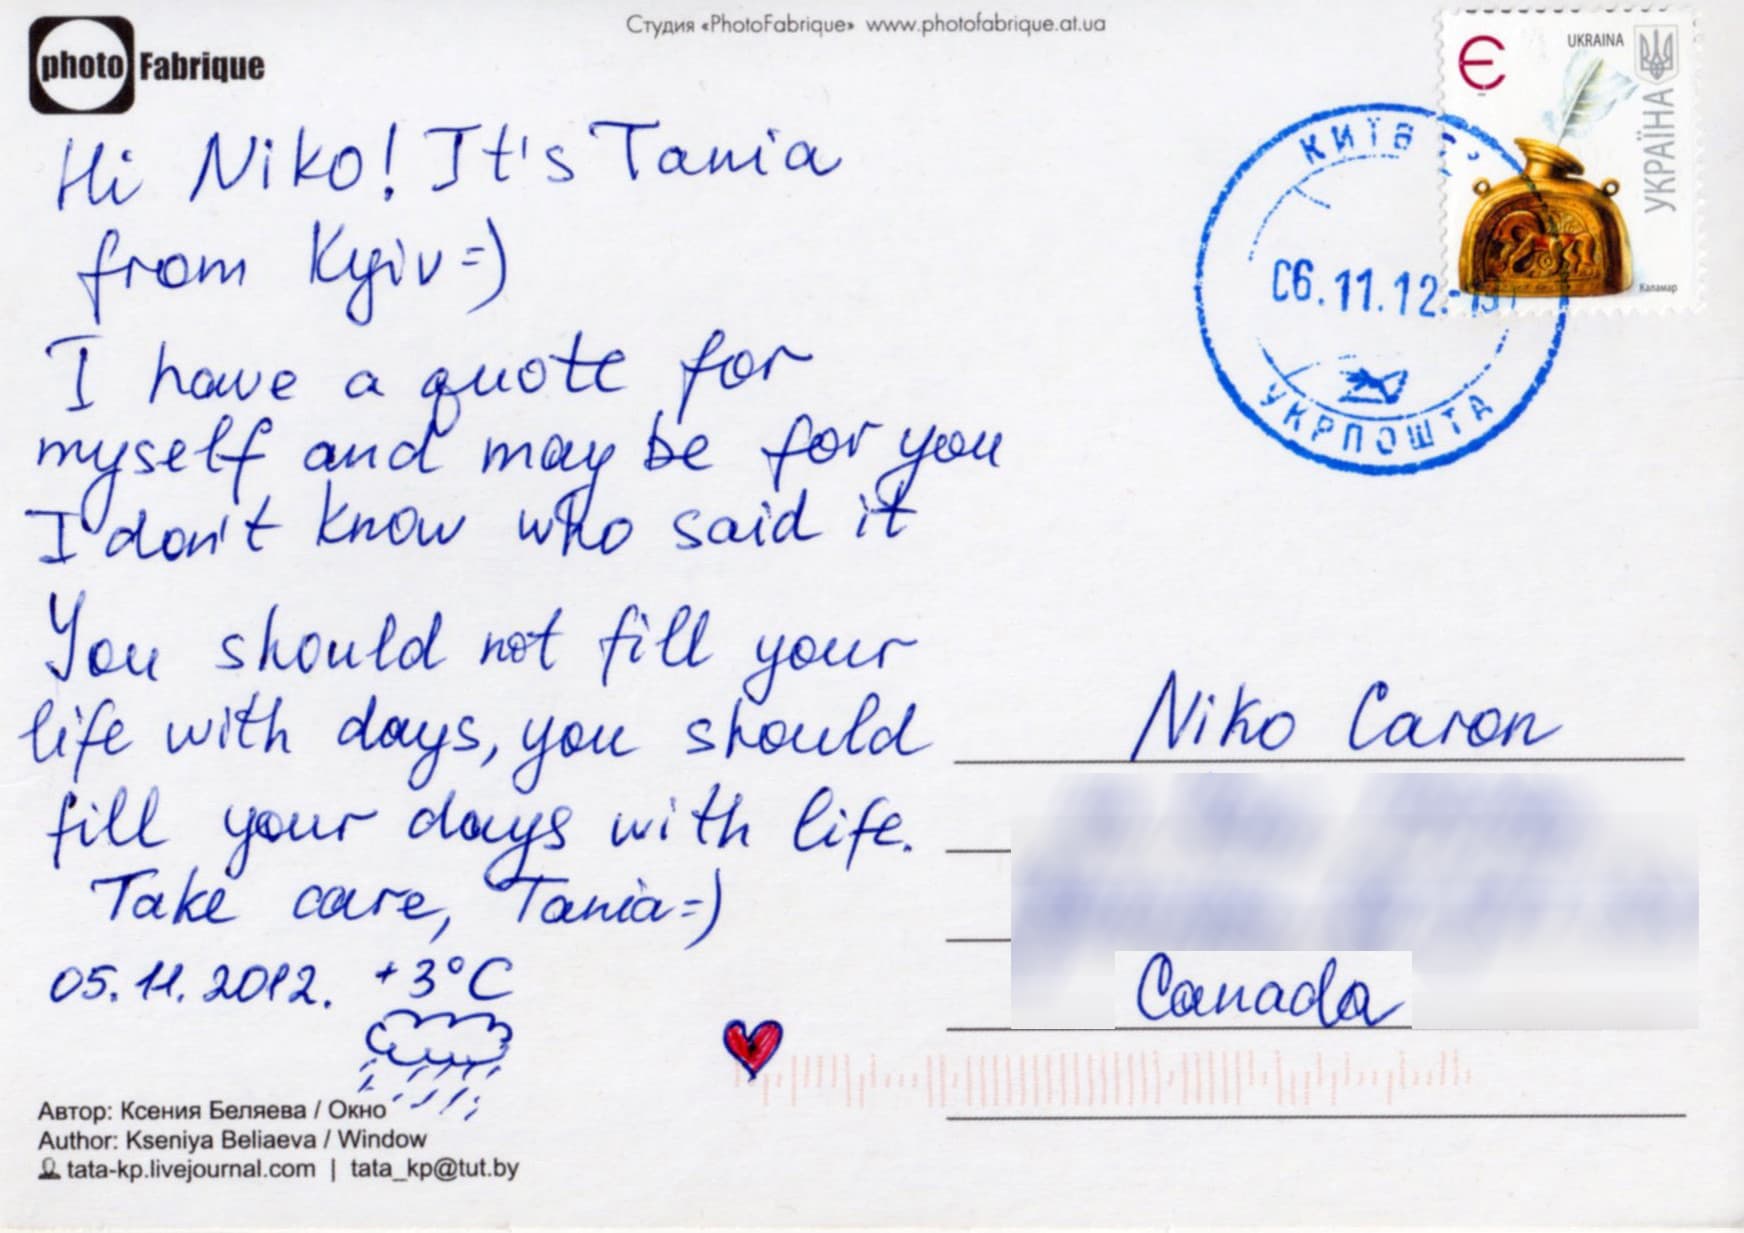 Студия «PhotoFabrique» www.photofabrique.at.ua
photo Fabrique
UKRAINA
Є
УКРАЇНА
Каламар
КИЇВ
06.11.12
УКРПОШТА
Hi Niko! It's Tania
from Kyiv=)
I have a quote for
myself and may be for you
I don't know who said it
You should not fill your
life with days, you should
fill your days with life.
Take care, Tania=)
05.11.2012. +3°C
Niko Caron
Canada
Автор: Ксения Беляева / Окно
Author: Kseniya Beliaeva / Window
tata-kp.livejournal.com | tata_kp@tut.by